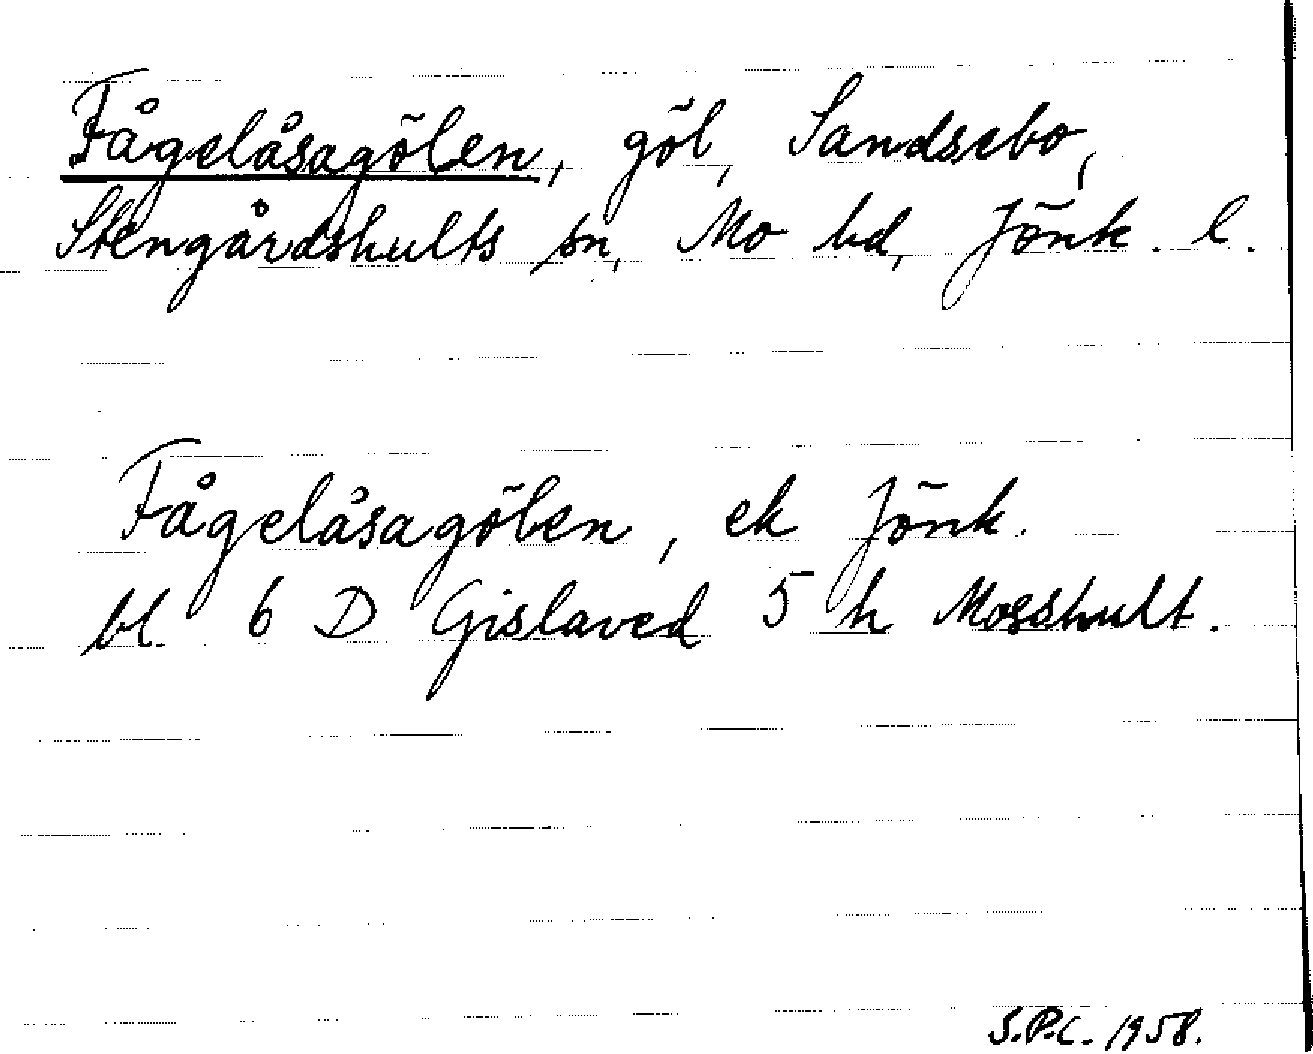 Fågelåsagölen, göl, Sandsebo,
Stengårdshults sn, Mo hd, Jönk. l.
Fågelåsagölen, ek Jönk.
bl. 6 D Gislaved 5 h Mosshult.
S.P.C. 1958.